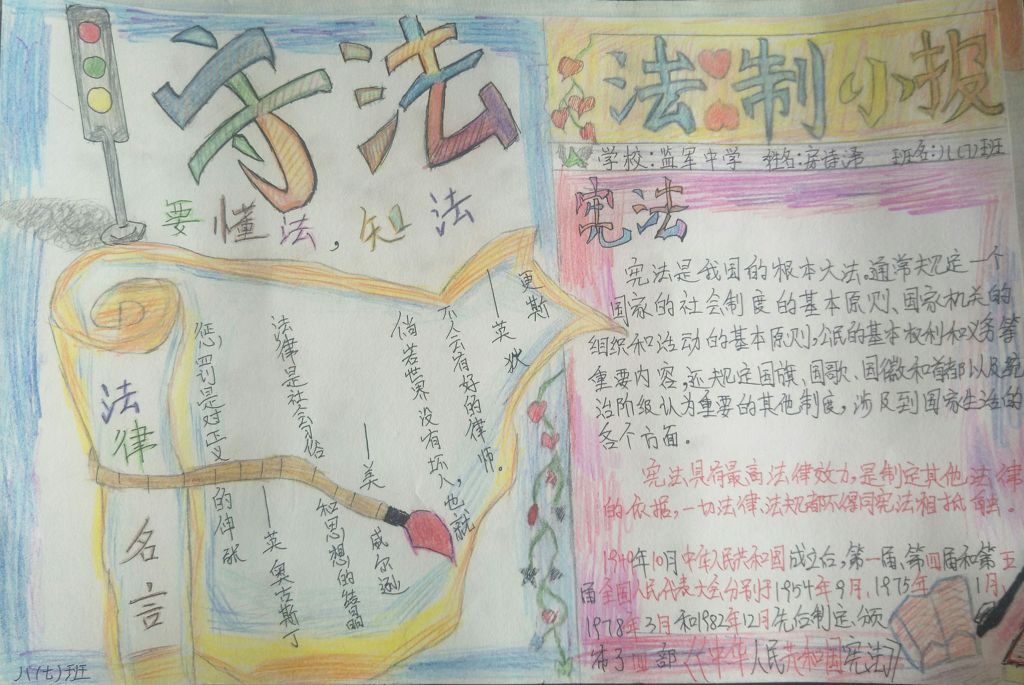 守法
要懂法，知法
法律名言
惩，罚是对正义的伸张
——英 奥古斯丁
法律是社会习俗和思想的结晶
——美 威尔逊
倘若世界没有坏人，也就
不会有好的律师。
——英 狄更斯
八(七)班
法制小报
学校：监军中学 姓名：诗涌 班名：八(7)班
宪法
宪法是我国的根本大法。通常规定一个
国家的社会制度的基本原则、国家机关的
组织和活动的基本原则，公民的基本权利和义务等
重要内容，还规定国旗、国歌、国徽和首都以及统
治阶级认为重要的其他制度，涉及到国家生活的
各个方面。
宪法具有最高法律效力，是制定其他法律
的依据，一切法律、法规都不得同宪法相抵触。
1949年10月中华人民共和国成立后，第一届、第四届和第五
届全国人民代表大会分别于1954年9月、1975年1月、
1978年3月和1982年12月先后制定、颁
布了四部《中华人民共和国宪法》